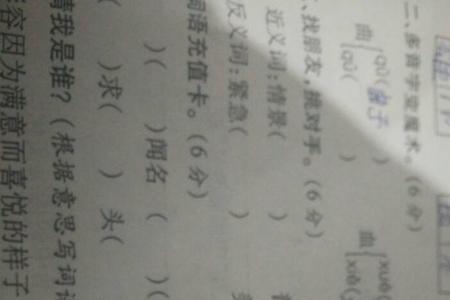 二、多音字变魔术。(6分)
曲 qū(曲子) 血 xuè
qǔ( ) xiě(
、找朋友,挑对手。(6分)
近义词:情景( )
反义词:紧急( )
词语充值卡。(6分)
)( )闻名 ( )(
)求( ) 头(
猜我是谁?(根据意思写词
形容因为满意而喜悦的样子